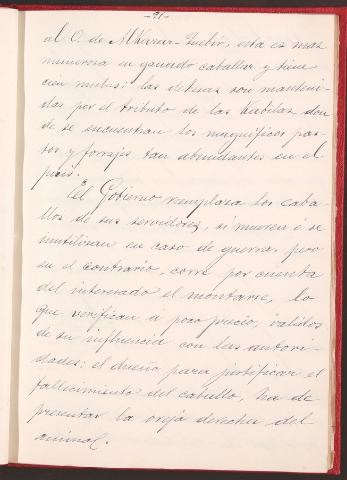 -91-
al O. de Alkazar-Quebir, esta es mas
numerosa en ganado caballar y tiene
cien mulas: las dehesas son manteni-
das por el tributo de las Kabilas don
de se encuentran los magnificos pas-
tos y forrajes tan abundantes en el
pais.
El Gobierno remplaza los caba-
llos de sus servidores, si mueren ó se
inutilizan en caso de guerra, pero
en el contrario, corre por cuenta
del interesado el montarse, lo
que verifican a poco precio, validos
de su influencia con las autori-
dades; el dueño para justificar el
fallecimiento del caballo, ha de
presentar la oreja derecha del
animal.